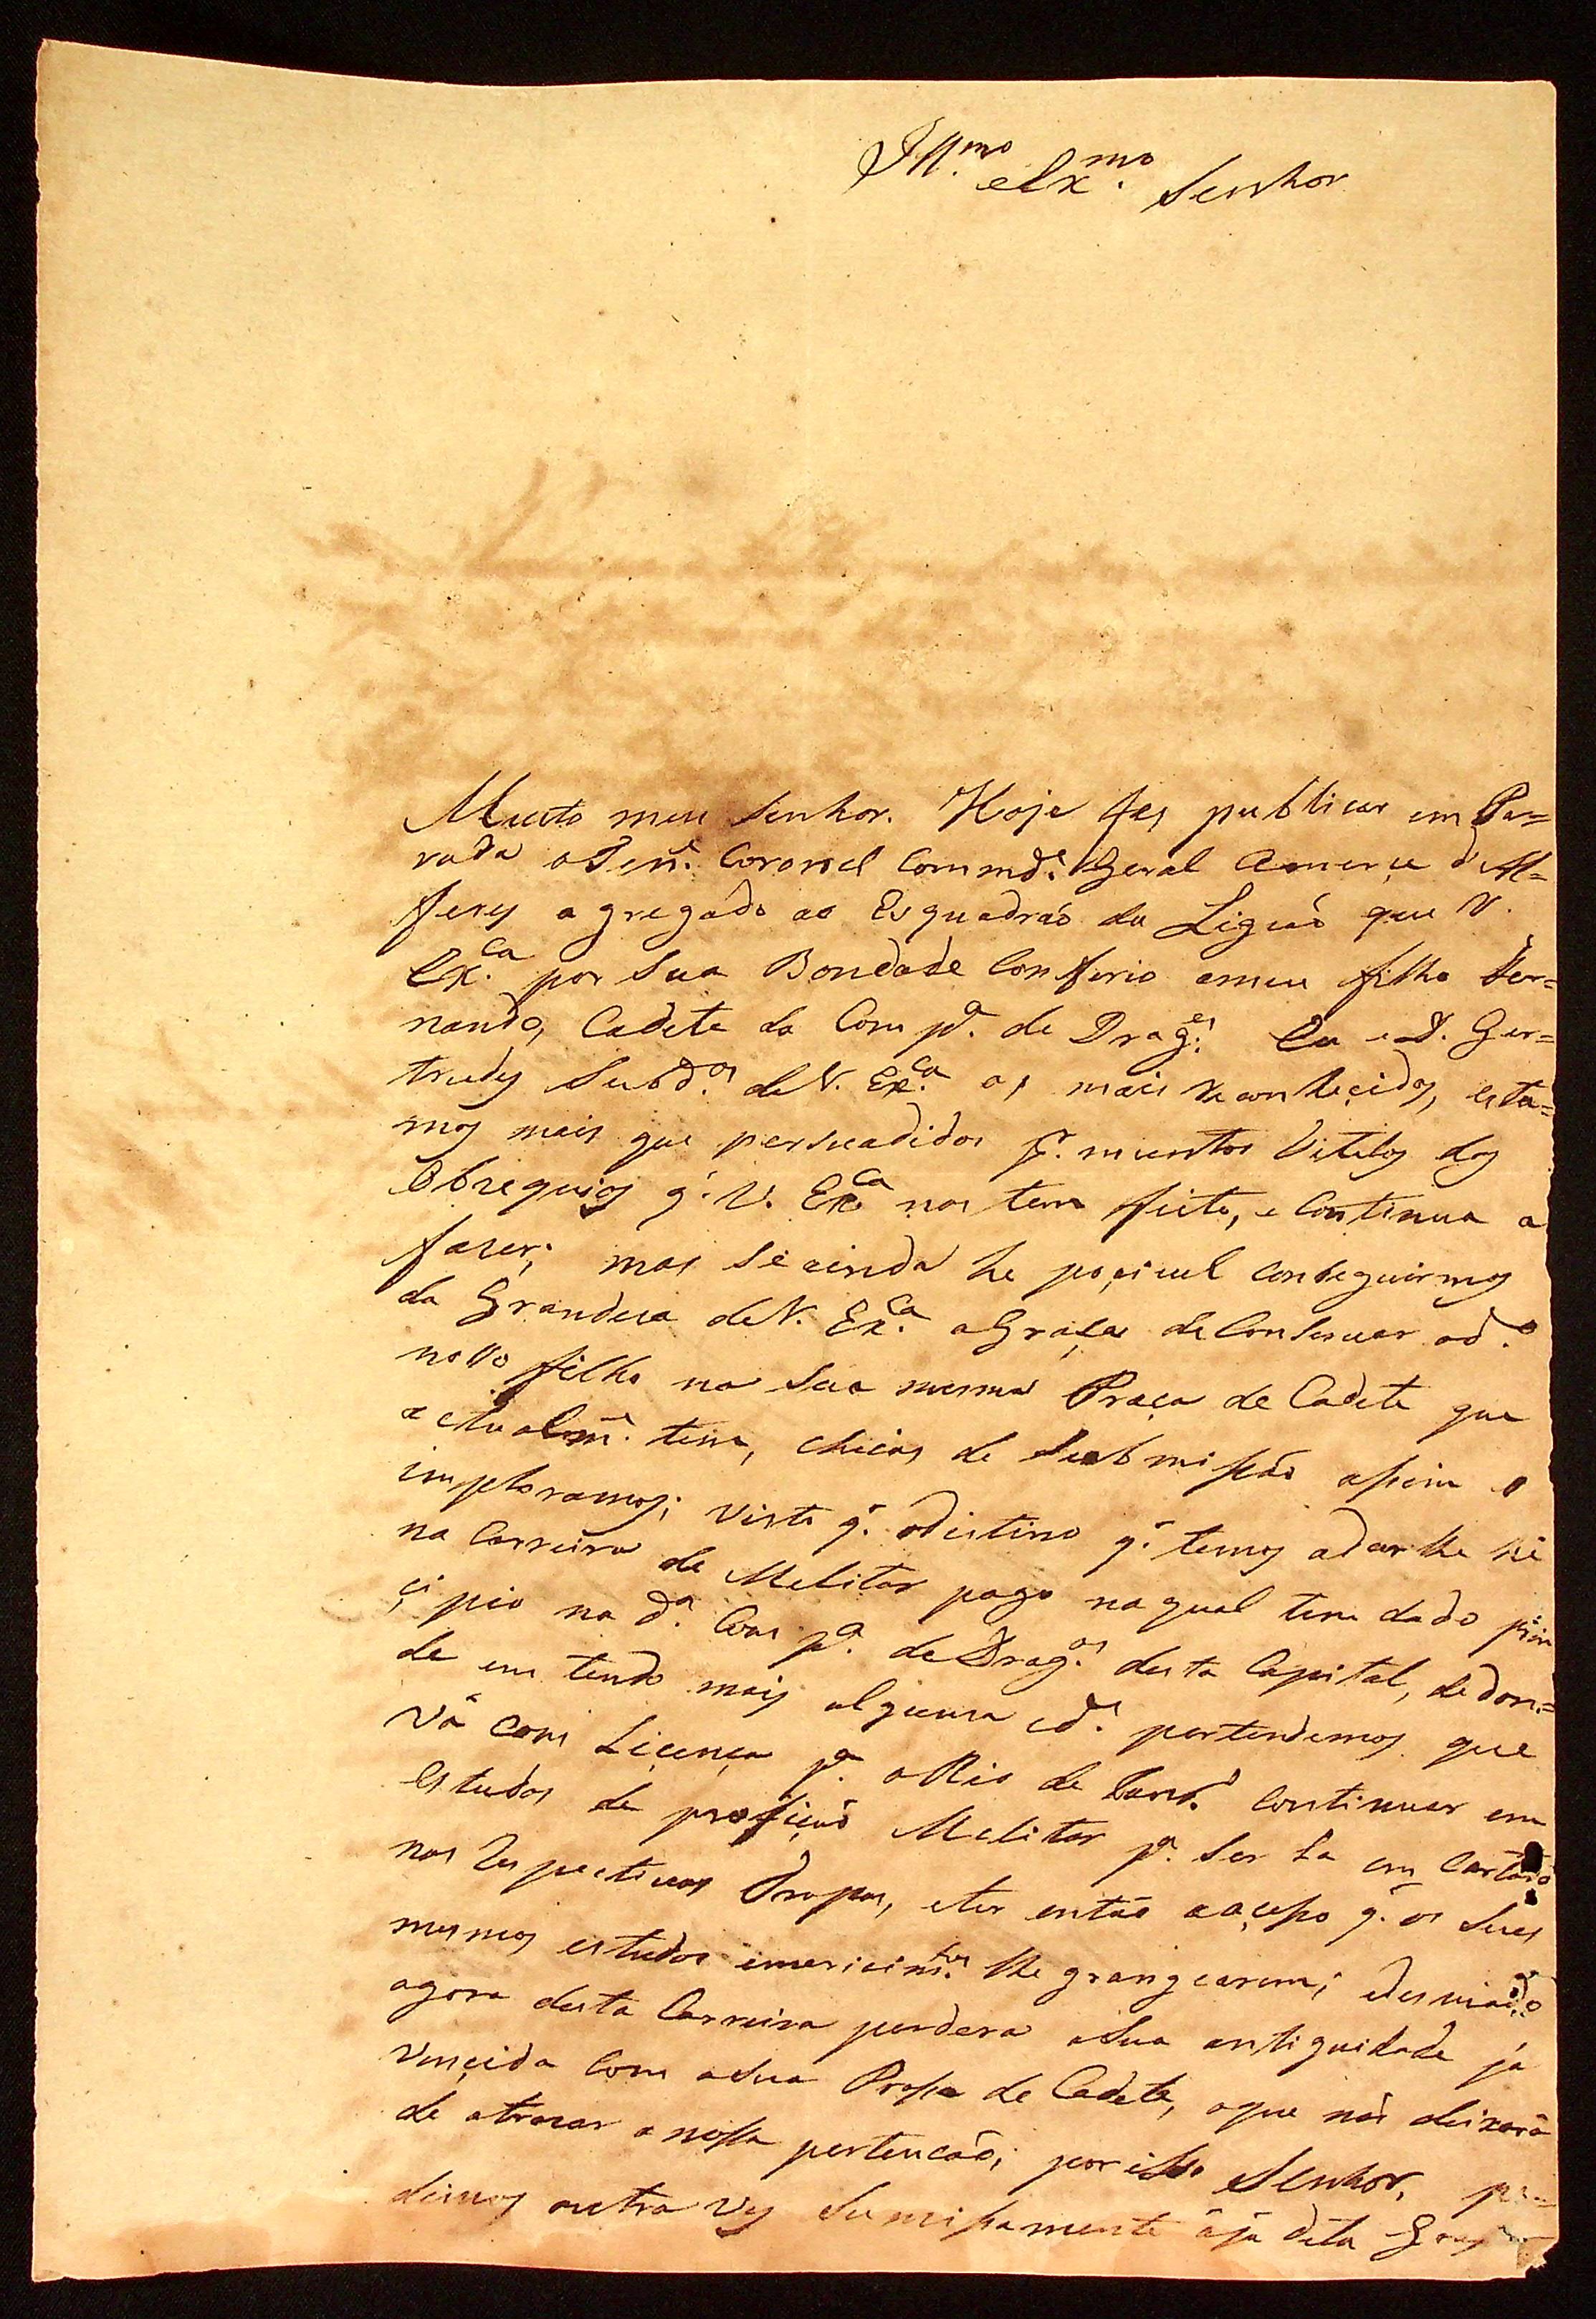 Ill.mo eEx.mo Senhor
Muito meu Senhor. Hoje fes publicar em Pa=
rada o Ten.e Coronel Commd.e Geral a merçe d'Al=
feres agregado ao Esquadraõ da Ligiaõ que V.
Ex.ca por Sua Bondade Conferio ameu filho Fer=
nando, Cadete da Comp.a de Drag.es Eu e D. Ger=
trudes Subd.os de V. Ex.ca os mais reconheçidos, esta=
mos mais que persuadidos p.r muntos Titolos dos
Obzequios q.' V. Ex.ca nos tem feito, e Continua a
faser; mas Se ainda he poçivel Conseguirmos
da Grandesa de V. Ex.ca aGraça de Conservar od.o
nosso filho na Sua mesma Praça de Cadete que
actualm.e tem, cheios de Submissaõ assim o
imploramos; visto q.' odistino q.' temos adar lhe hé
na Carreira de Melitar pago naqual tem dado prin
çipio na d.a Comp.a de Drag.es desta Capital, dedon=
de em tendo mais alguma id.e pertendemos que
vá Com Liçença p.a oRio de Janr.o Continuar em
estudos de profiçaõ Melitar p.a Ser la em
nos Respectivos Tropas, eter entaõ oaçesso q.' os Seus
mesmos estudos emericim.tos lhe grangearem; edesviado
agora desta Carreira perdera aSua antiguidade já
vençida Com aSua Prassa de Cadete, oque nós deixará
de atrazar a nossa pertençaõ; por isso Senhor, pe=
dimos outra vez Sumissamente aja dita